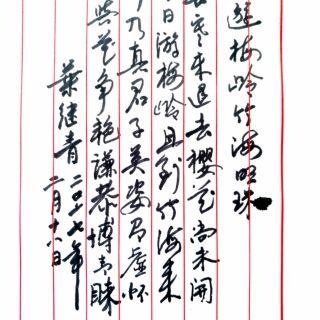 游梅岭竹海明珠
寒未退去樱花尚未开
日游梅岭且到竹海来
乃真君子英姿口虚怀
与花争艳谦恭博青睐
叶继青二〇一七年
二月十六日